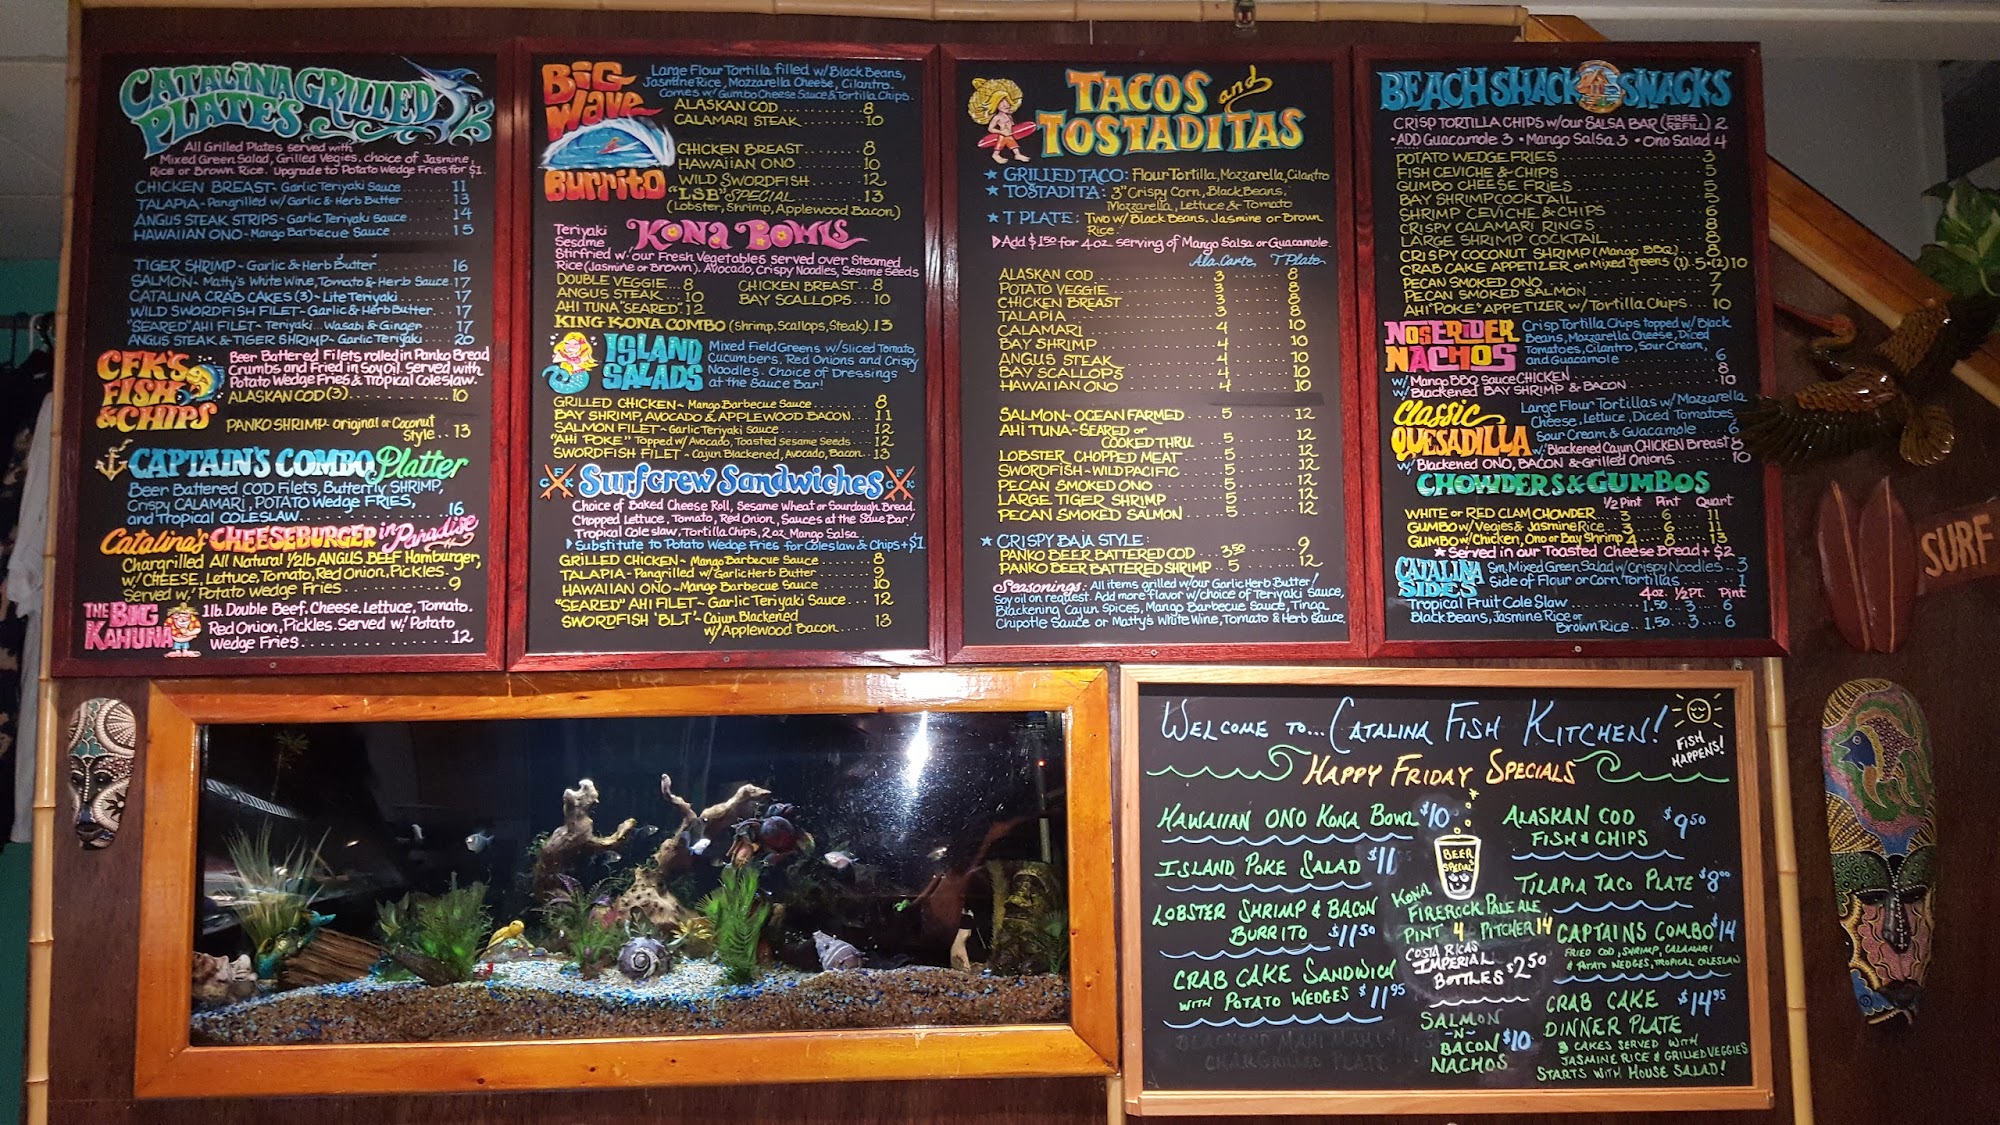 CATALINA GRILLED
PLATES
All Grilled Plates served with
Mixed Green Salad, Grilled Vegies, choice of Jasmine,
Rice or Brown Rice. Upgrade to Potato Wedge Fries for $1.
CHICKEN BREAST - Garlic Teriyaki Sauce 11
TALAPIA - Pangrilled w/ Garlic & Herb Butter 13
ANGUS STEAK STRIPS - Garlic Teriyaki Sauce 14
HAWAIIAN ONO - Mango Barbecue Sauce 15
TIGER SHRIMP - Garlic & Herb Butter 16
SALMON - Matty's White Wine, Tomato & Herb Sauce 17
CATALINA CRAB CAKES (3) - Lite Teriyaki 17
WILD SWORDFISH FILET - Garlic & Herb Butter 17
"SEARED" AHI FILET - Teriyaki Wasabi & Ginger 17
ANGUS STEAK & TIGER SHRIMP - Garlic Teriyaki 20
CFK'S
FISH
& CHIPS
Beer Battered Filets rolled in Panko Bread
Crumbs and Fried in Soy Oil. Served with
Potato Wedge Fries & Tropical Coleslaw.
ALASKAN COD (3) 10
PANKO SHRIMP - Original or Coconut
Style 13
CAPTAIN'S COMBO Platter
Beer Battered COD Filets, Butterfly SHRIMP,
Crispy CALAMARI, POTATO Wedge FRIES,
and Tropical COLESLAW 16
Catalina's CHEESEBURGER in Paradise
Chargrilled All Natural 1/2lb ANGUS BEEF Hamburger,
w/ CHEESE, Lettuce, Tomato, Red Onion, Pickles.
Served w/ Potato Wedge Fries 9
THE
BIG
KAHUNA
1 lb. Double Beef, Cheese, Lettuce, Tomato.
Red Onion, Pickles. Served w/ Potato
Wedge Fries 12
BIG
Wave
Burrito
Large Flour Tortilla filled w/ Black Beans,
Jasmine Rice, Mozzarella Cheese, Cilantro.
Comes w/ Gumbo Cheese Sauce & Tortilla Chips.
ALASKAN COD 8
CALAMARI STEAK 10
CHICKEN BREAST 8
HAWAIIAN ONO 10
WILD SWORDFISH 12
"LSB" SPECIAL 13
(Lobster, Shrimp, Applewood Bacon)
KONA BOWLS
Teriyaki
Sesame
Stirfried w/ our Fresh Vegetables served over Steamed
Rice (Jasmine or Brown). Avocado, Crispy Noodles, Sesame Seeds
DOUBLE VEGGIE 8 CHICKEN BREAST 8
ANGUS STEAK 10 BAY SCALLOPS 10
AHI TUNA "SEARED" 12
KING KONA COMBO (Shrimp, Scallops, Steak) 13
ISLAND
SALADS
Mixed Field Greens w/ Sliced Tomato,
Cucumbers, Red Onions and Crispy
Noodles. Choice of Dressings
at the Sauce Bar!
GRILLED CHICKEN - Mango Barbecue Sauce 8
BAY SHRIMP, AVOCADO & APPLEWOOD BACON 11
SALMON FILET - Garlic Teriyaki Sauce 12
"AHI POKE" Topped w/ Avocado, Toasted Sesame Seeds 12
SWORDFISH FILET - Cajun Blackened, Avocado, Bacon 13
Surfcrew Sandwiches
Choice of Baked Cheese Roll, Sesame Wheat or Sourdough Bread.
Chopped Lettuce, Tomato, Red Onion, Sauces at the Sauce Bar!
Tropical Coleslaw, Tortilla Chips, 2 oz. Mango Salsa.
Substitute to Potato Wedge Fries for Coleslaw & Chips + $1
GRILLED CHICKEN - Mango Barbecue Sauce 8
TALAPIA - Pangrilled w/ Garlic Herb Butter 8
HAWAIIAN ONO - Mango Barbecue Sauce 10
"SEARED" AHI FILET - Garlic Teriyaki Sauce 12
SWORDFISH "BLT" - Cajun Blackened
w/ Applewood Bacon 13
TACOS and
TOSTADITAS
★ GRILLED TACO: Flour Tortilla, Mozzarella, Cilantro
★ TOSTADITA: 3" Crispy Corn, Black Beans,
Mozzarella, Lettuce & Tomato
★ T PLATE: Two w/ Black Beans, Jasmine or Brown
Rice
Add $1.50 for 4 oz. serving of Mango Salsa or Guacamole
Ala Carte T Plate
ALASKAN COD 3 8
POTATO VEGGIE 3 8
CHICKEN BREAST 3 8
TALAPIA 3 8
CALAMARI 4 10
BAY SHRIMP 4 10
ANGUS STEAK 4 10
BAY SCALLOPS 4 10
HAWAIIAN ONO 4 10
SALMON - OCEAN FARMED 5 12
AHI TUNA - SEARED or
COOKED THRU 5 12
LOBSTER CHOPPED MEAT 5 12
SWORDFISH - WILD PACIFIC 5 12
PECAN SMOKED ONO 5 12
LARGE TIGER SHRIMP 5 12
PECAN SMOKED SALMON 5 12
★ CRISPY BAJA STYLE:
PANKO BEER BATTERED COD 3.50 9
PANKO BEER BATTERED SHRIMP 5 12
Seasonings: All items grilled w/ our Garlic Herb Butter!
Soy oil on request. Add more flavor w/ choice of Teriyaki Sauce,
Blackening Cajun Spices, Mango Barbecue Sauce, Tinga
Chipotle Sauce or Matty's White Wine, Tomato & Herb Sauce.
BEACH SHACK SNACKS
CRISP TORTILLA CHIPS w/ our SALSA BAR (FREE REFILL) 2
• ADD Guacamole 3 • Mango Salsa 3 • Ono Salad 4
POTATO WEDGE FRIES 3
FISH CEVICHE & CHIPS 5
GUMBO CHEESE FRIES 5
BAY SHRIMP COCKTAIL 5
SHRIMP CEVICHE & CHIPS 6
CRISPY CALAMARI RINGS 8
LARGE SHRIMP COCKTAIL 8
CRISPY COCONUT SHRIMP (Mango BBQ) 8
CRAB CAKE APPETIZER on Mixed greens (1) 5 (2) 10
PECAN SMOKED ONO 7
PECAN SMOKED SALMON 7
AHI "POKE" APPETIZER w/ Tortilla Chips 10
NOSERIDER
NACHOS
Crisp Tortilla Chips topped w/ Black
Beans, Mozzarella Cheese, Diced
Tomatoes, Cilantro, Sour Cream,
and Guacamole 6
w/ Mango BBQ Sauce CHICKEN 8
w/ Blackened BAY SHRIMP & BACON 10
Classic
QUESADILLA
Large Flour Tortillas w/ Mozzarella
Cheese, Lettuce, Diced Tomatoes
Sour Cream & Guacamole 6
w/ Blackened Cajun CHICKEN Breast 8
w/ Blackened ONO, BACON & Grilled Onions 10
CHOWDERS & GUMBOS
1/2 Pint Pint Quart
WHITE or RED CLAM CHOWDER 3 6 11
GUMBO w/ Vegies & Jasmine Rice 3 6 11
GUMBO w/ Chicken, Ono or Bay Shrimp 4 8 13
★ Served in our Toasted Cheese Bread + $2
CATALINA
SIDES
Sm. Mixed Green Salad w/ Crispy Noodles 3
Side of Flour or Corn Tortillas 1
4oz. 1/2 PT. Pint
Tropical Fruit Cole Slaw 1.50 3 6
Black Beans, Jasmine Rice or
Brown Rice 1.50 3 6
SURF
WELCOME TO... CATALINA FISH KITCHEN!
FISH
HAPPENS!
HAPPY FRIDAY SPECIALS
HAWAIIAN ONO KONA BOWL $10
ISLAND POKE SALAD $11
LOBSTER SHRIMP & BACON
BURRITO $11.50
CRAB CAKE SANDWICH
WITH POTATO WEDGES $11.95
BLACKEND MAHI MAHI
CHARGRILLED PLATE
BEER
SPECIALS
KONA
FIREROCK PALE ALE
PINT 4 PITCHER 14
COSTA RICAS
IMPERIAL
BOTTLES $2.50
SALMON
-N-
BACON $10
NACHOS
ALASKAN COD $9.50
FISH & CHIPS
TILAPIA TACO PLATE $8.00
CAPTAINS COMBO $14
FRIED COD, SHRIMP, CALAMARI
& POTATO WEDGES, TROPICAL COLESLAW
CRAB CAKE $14.95
DINNER PLATE
3 CAKES SERVED WITH
JASMINE RICE & GRILLED VEGGIES
STARTS WITH HOUSE SALAD!